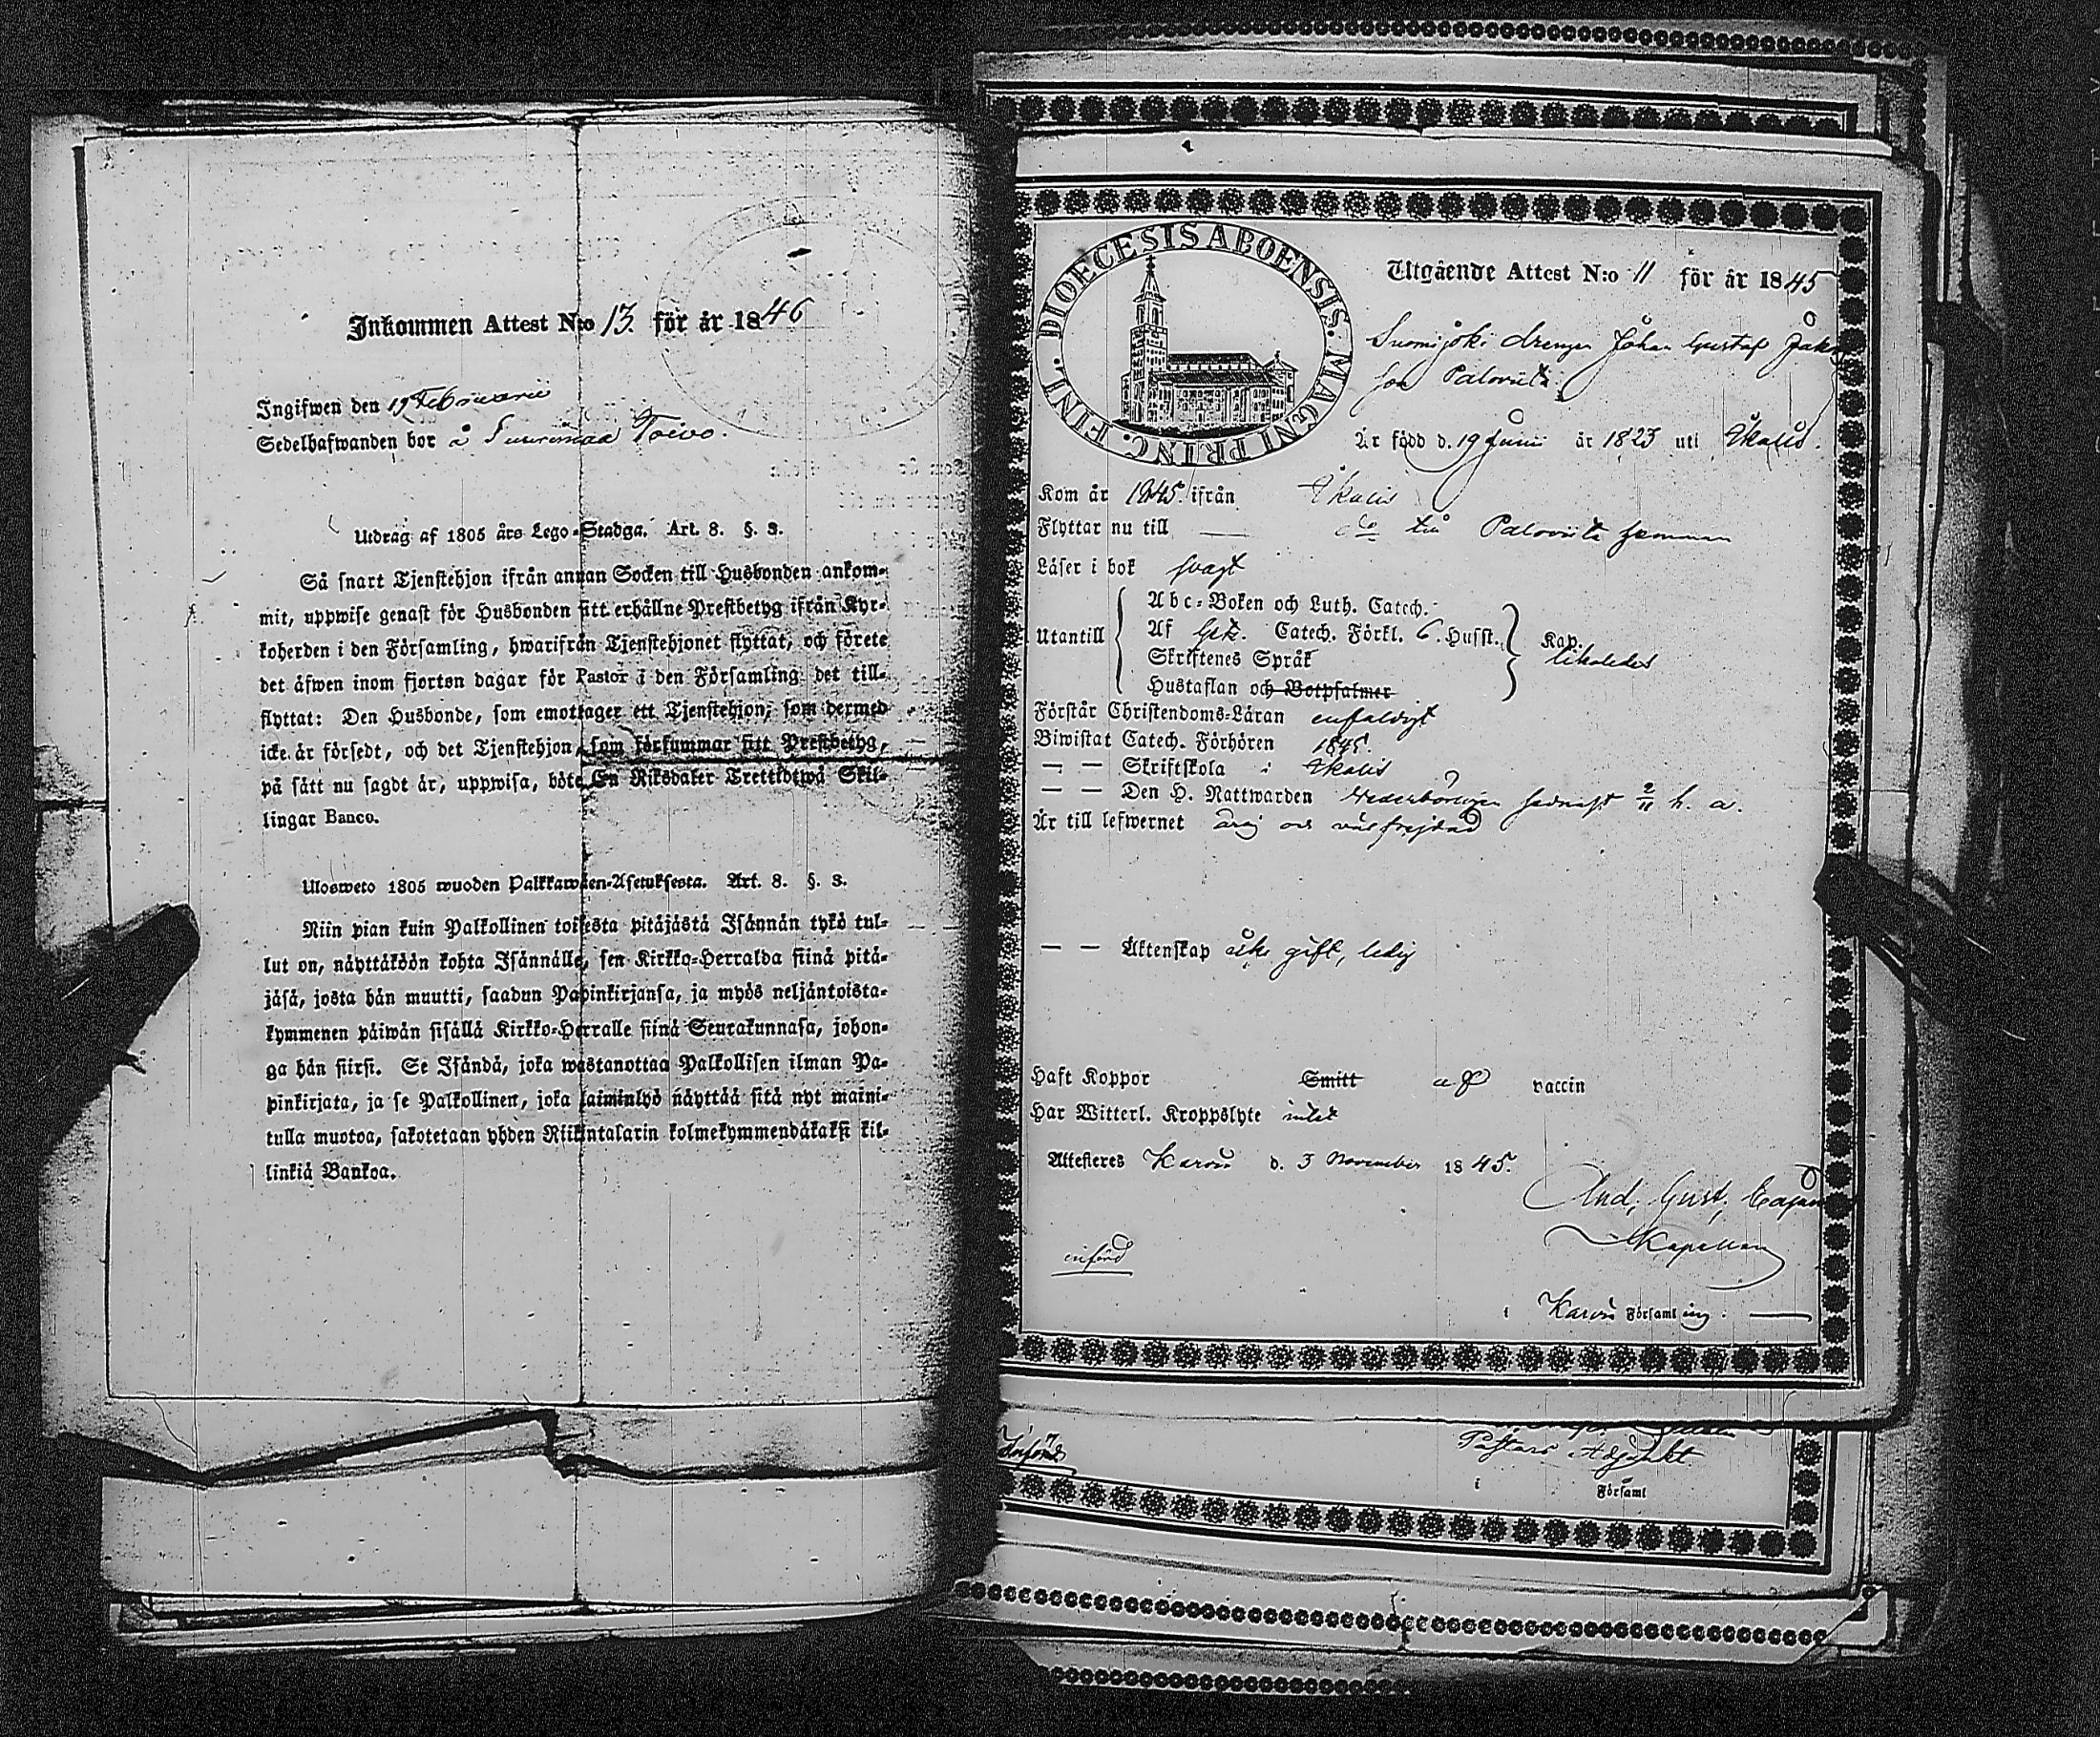 Inkommen Attest N:o 13. för år 1846
Ingifwen den 19 Februarii
Sedelhafwanden bor å Suurimaa Toivo.
Utdrag af 1805 års Lego-Stadga. Art. 8. §. 3.
Så snart Tjenstehjon ifrån annan Socken till Husbonden ankom-
mit, uppwise genast för Husbonden sitt erhållne Prestbetyg ifrån Kyr-
koherden i den Församling, hwarifrån Tjenstehjonet flyttat, och förete
det äfwen inom fjorton dagar för Pastor i den Församling det till-
flyttat: Den Husbonde, som emottager ett Tjenstehjon, som dermed
icke är försedt, och det Tjenstehjon, som försummar sitt Prestbetyg,
på sätt nu sagdt är, uppwisa, böte En Riksdaler Trettiotwå Skil-
lingar Banco.
Ulosweto 1805 wuoden Palkkawäen-Asetuksesta. Art. 8. §. 3.
Niin pian kuin Palkollinen toisesta pitäjästä Isännän tykö tul-
lut on, näyttäköön kohta Isännälle, sen Kirkko-Herralda siinä pitä-
jäsä, josta hän muutti, saadun Papinkirjansa, ja myös neljäntoista-
kymmenen päiwän sisällä Kirkko-Herralle siinä Seurakunnasa, johon-
ga hän siirsi. Se Isändä, joka wastanottaa Palkollisen ilman Pa-
pinkirjata, ja se Palkollinen, joka laiminlyö näyttää sitä nyt maini-
tulla muotoa, sakotetaan yhden Riikintalarin kolmekymmendäkaksi kil-
linkiä Bankoa.
DIOECESIS ABOENSIS. MAGNI PRINC. FINL.
Utgående Attest N:o 11 för år 1845
Suomijoki drengen Johan Gustaf Jak
son Paloviita
Är född d. 19 Junii år 1823 uti Ikalis.
Kom år 1845. ifrån Ikalis
Flyttar nu till do till Paloviita hemman
Läser i bok svagt
Abc-Boken och Luth. Catech.
Utantill Af Catech. Förkl. 6. Husst. Kap.
Skriftenes Språk likaledes
Hustaflan och Botpsalmer
Förstår Christendoms-Läran enfaldigt
Biwistat Catech. Förhören 1845.
— — Skriftskola i Ikalis
— — Den H. Nattwarden Vederbörligen sednast 2/11 h. a.
Är till lefwernet ärlig och väl frejdad
— — Äktenskap icke gift, ledig
Haft Koppor Smitt af vaccin
Har Witterl. Kroppslyte intet
Attesteres Karvia d. 3 November 1845.
And. Gust.
Kapellan
införd
i Karvia Församling.
Införd
Pastors Adjunkt
i Församl